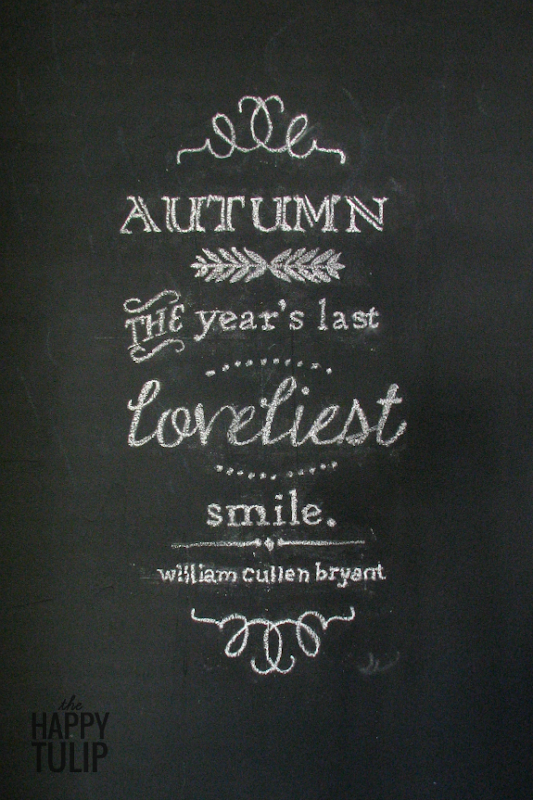 AUTUMN
THE year's last
loveliest
smile.
william cullen bryant
the
HAPPY
TULIP